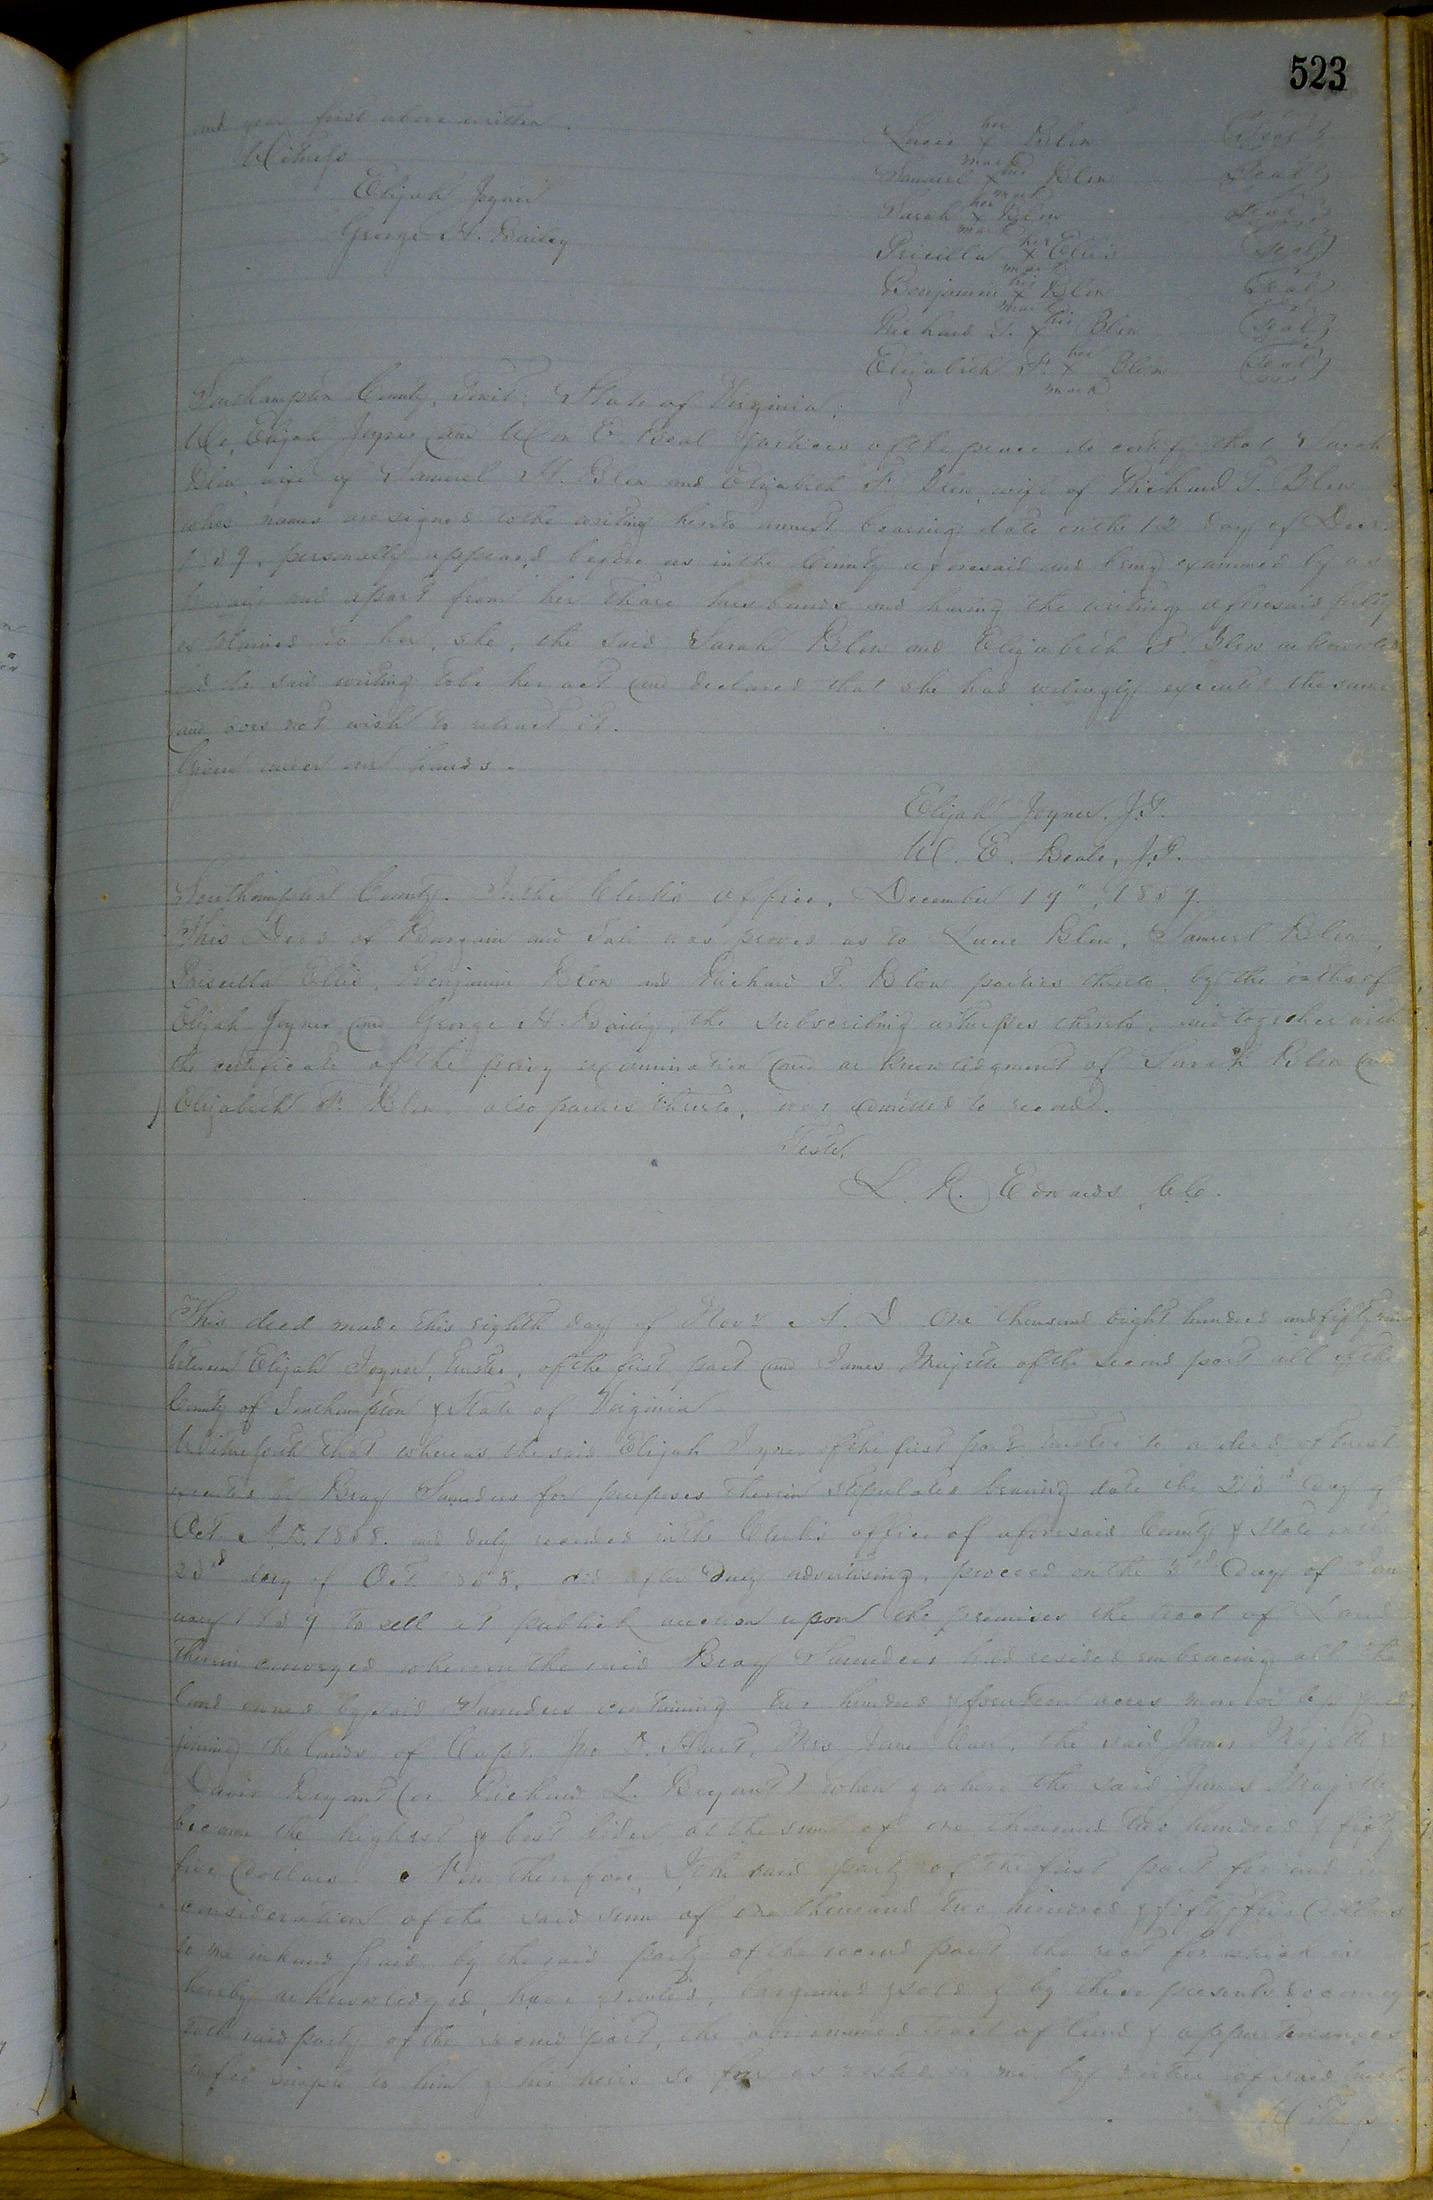 523
and year first above written.
Witness
Elijah Joyner
George H. Bailey
her
Lucie X Blow (Seal)
mark
his
Samuel X Blow (Seal)
mark
her
Sarah X Blow (Seal)
mark
her
Priscilla X Ellis (Seal)
mark
his
Benjamin X Blow (Seal)
mark
his
Richard T. X Blow (Seal)
her
Elizabeth F. X Blow (Seal)
mark
Southampton County, Towit: State of Virginia:
We, Elijah Joyner and Wm E. Beal Justices of the peace do certify that Sarah
Blow wife of Samuel H. Blow and Elizabeth F. Blow wife of Richard T. Blow
whos names are signed to the writing hereto annext bearing date on the 12 day of Decr.
1859, personally appeared before us in the County aforesaid and being examined by us
and apart from her thare husbands and having the writing aforesaid fully
explained to her, she, the said Sarah Blow and Elizabeth F. Blow acknowled
the said writing to be her act and declared that she had willingly executed the same
and does not wish to retract it.
Given under our hands.
Elijah Joyner. J.P.
W. E. Beale, J.P.
Southampton County. In the Clerk's office, December 19", 1859.
This Deed of Bargain and Sale was proved as to Lucie Blow, Samuel Blow,
Priscilla Ellis, Benjamin Blow and Richard T. Blow parties thereto, by the oaths of
Elijah Joyner and George H. Bailey, the subscribing witnesses thereto, and together with
the certificate of the privy examination and acknowledgment of Sarah Blow and
Elizabeth F. Blow also parties thereto, was admitted to record.
Teste,
L. R. Edwards C.C.
This deed made this eighth day of Novr. A. D One thousand eight hundred and fifty nine
between Elijah Joyner, Trustee, of the first part and James Majette of the second part all of the
County of Southampton & State of Virginia
Witnesseth that whereas the said Elijah Joyner of the first part trustee to a deed of trust
executed by Bray Saunders for purposes therein stipulated bearing date the 23rd day of
Oct. A.D. 1858. and duly recorded in the Clerk's office of aforesaid County & State on the
23rd day of Oct. 1858, did after due advertising, proceed on the 3rd day of Jan
uary 1859 to sell at publick auction upon the premises the tract of Land
therein conveyed whereon the said Bray Saunders had resided embracing all the
land owned by said Saunders containing two hundred & fourteen acres more or less & ad
joining the lands of Capt. Jno Hart, Mrs Jane the said James Majette &
David Bryant (or Richard L. Bryant) when & where the said James Majette
became the highest & best bider at the sum of one thousand two hundred & fifty
five dollars. Now therefore, I the said party of the first part for and in
consideration of the said sum of one thousand two hundred & fifty five dollars
to me in hand paid by the said party of the second part, the rect for which is
hereby acknowledged, have granted, bargained & sold & by these presents do convey
to the said party of the second part, the aforenamed tract of land & appurtenances
in fee simple to him & his heirs so far as vested in me by virtue of said trust.
Witness